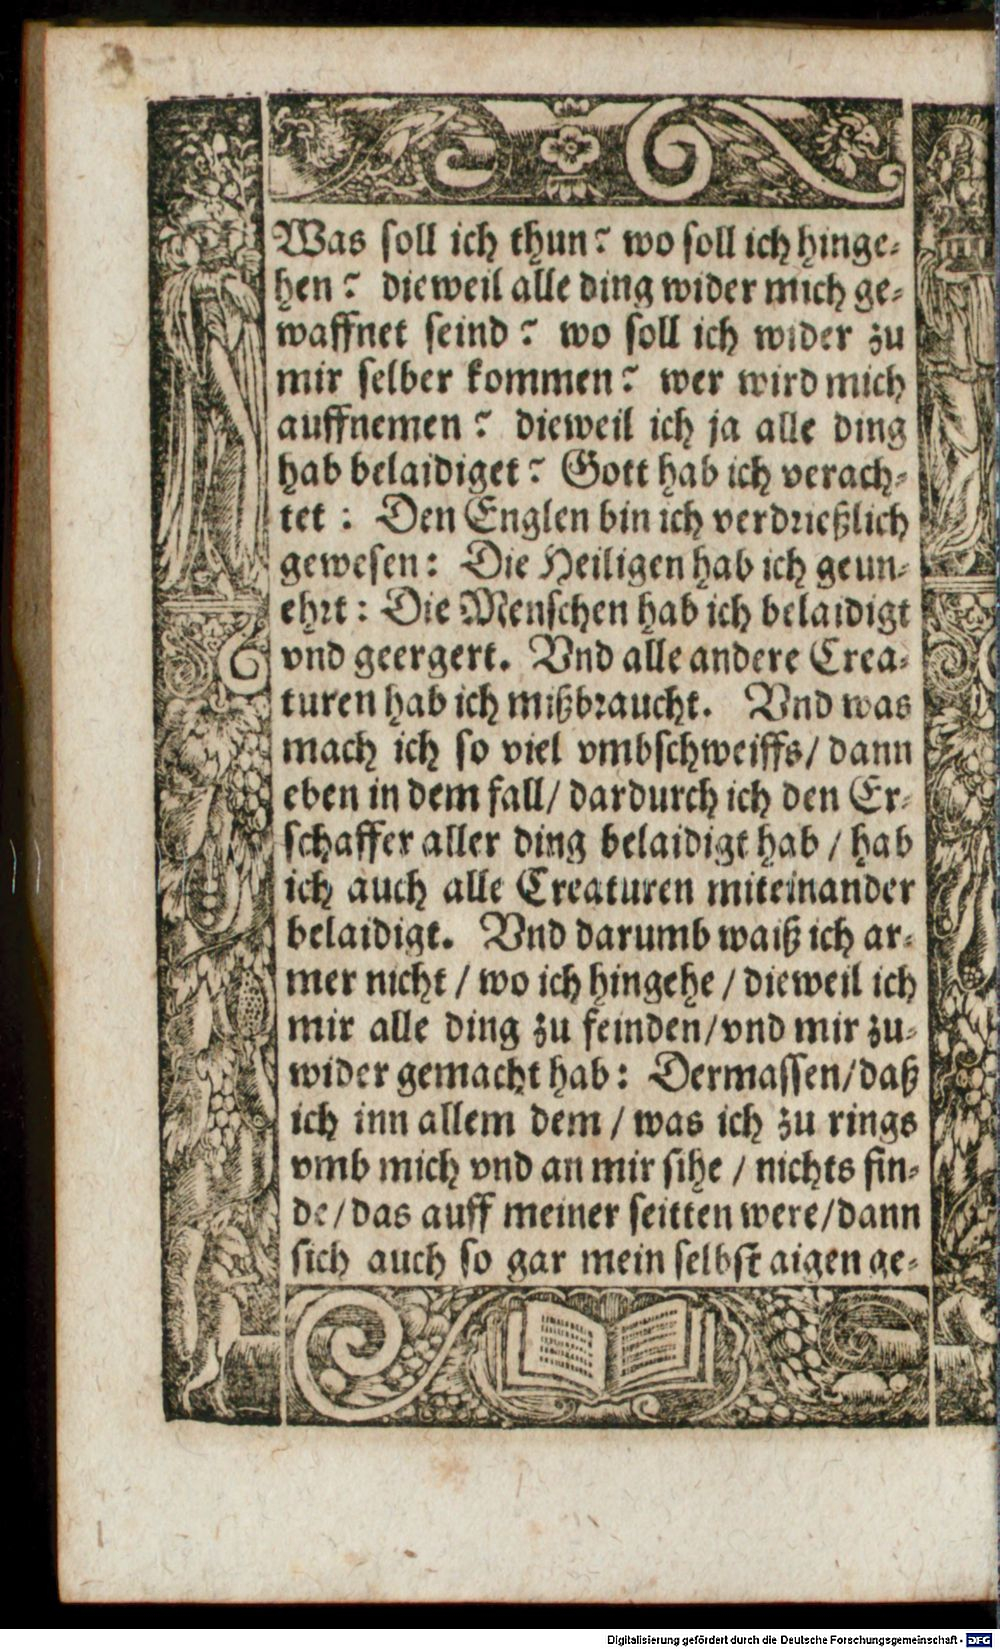 Was soll ich thun? wo soll ich hinge-
hen? dieweil alle ding wider mich ge-
waffnet seind? wo soll ich wider zu
mir selber kommen? wer wird mich
auffnemen? dieweil ich ja alle ding
hab belaidiget? Gott hab ich verach-
tet: Den Englen bin ich verdrießlich
gewesen: Die Heiligen hab ich geun-
ehrt: Die Menschen hab ich belaidigt
vnd geergert. Vnd alle andere Crea-
turen hab ich mißbraucht. Vnd was
mach ich so viel vmbschweiffs/ dann
eben in dem fall/ dardurch ich den Er-
schaffer aller ding belaidigt hab / hab
ich auch alle Creaturen miteinander
belaidigt. Vnd darumb waiß ich ar-
mer nicht / wo ich hingehe / dieweil ich
mir alle ding zu feinden/vnd mir zu-
wider gemacht hab: Dermassen/daß
ich inn allem dem / was ich zu rings
vmb mich vnd an mir sihe / nichts fin-
de/das auff meiner seitten were/dann
sich auch so gar mein selbst aigen ge-
Digitalisierung gefördert durch die Deutsche Forschungsgemeinschaft - DFG